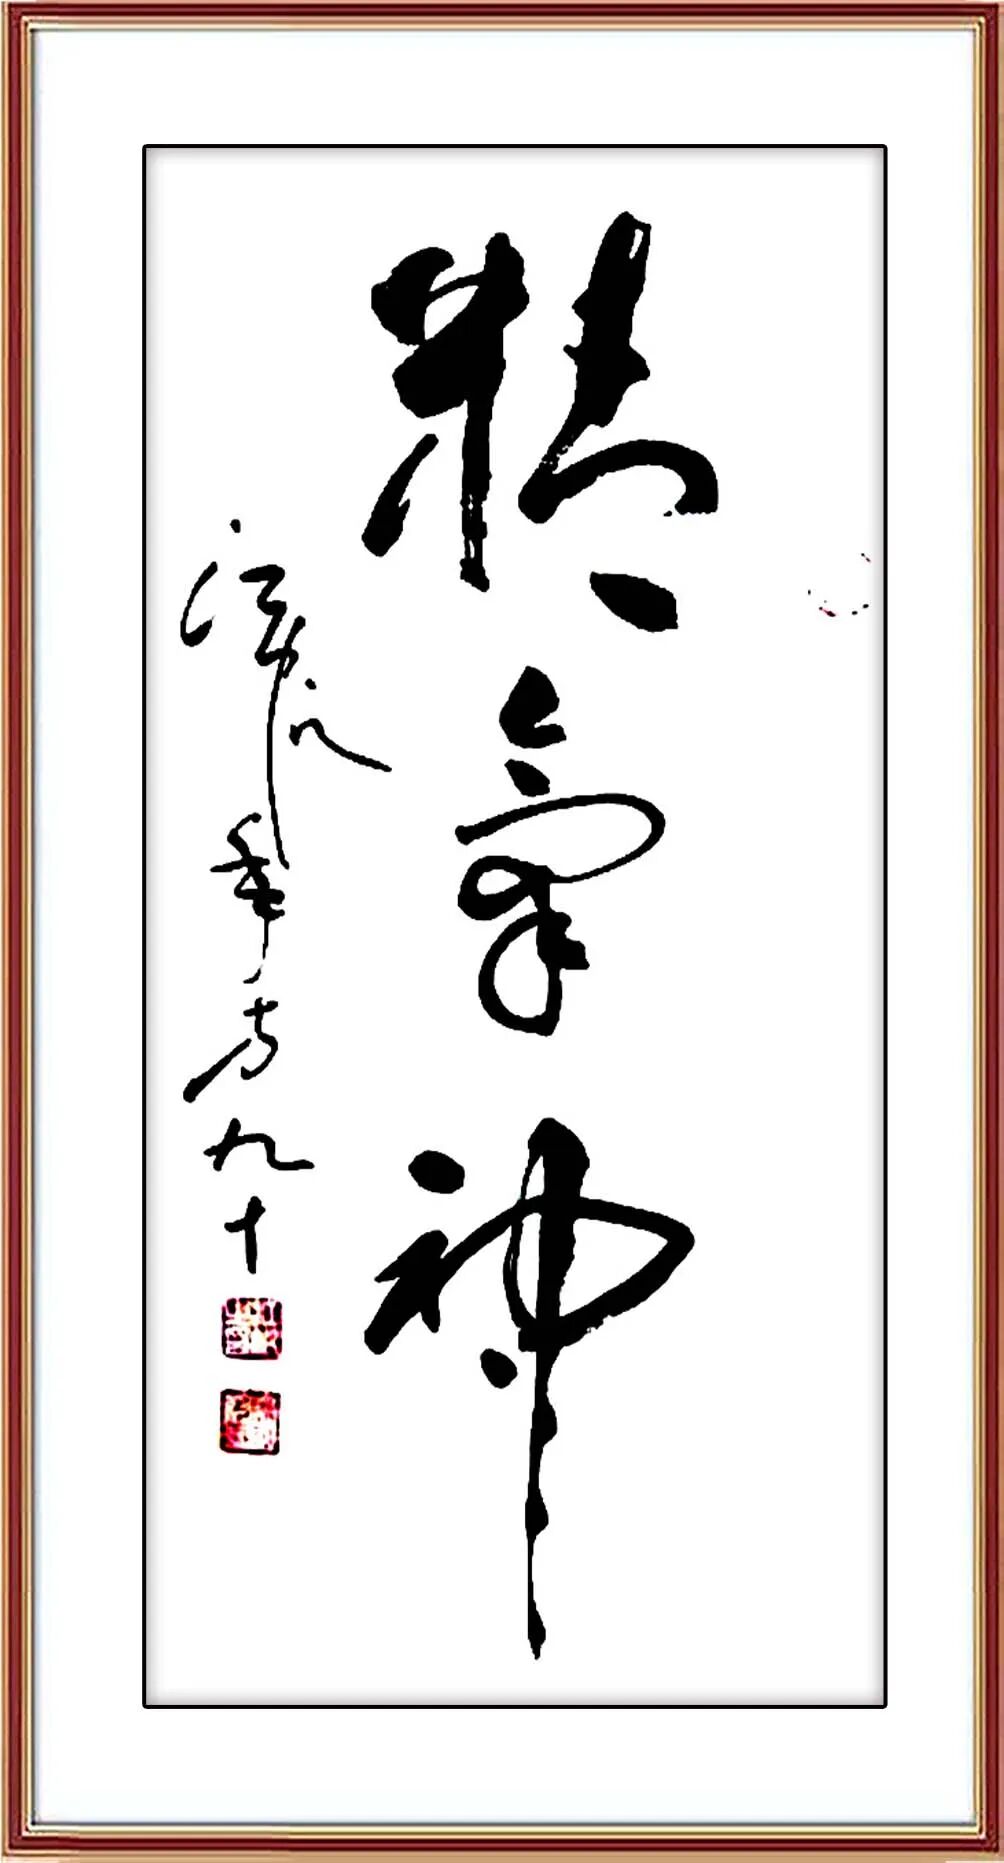 精氣神
年方九十